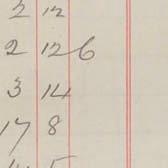 2 12
2 12 6
3 14
17 8